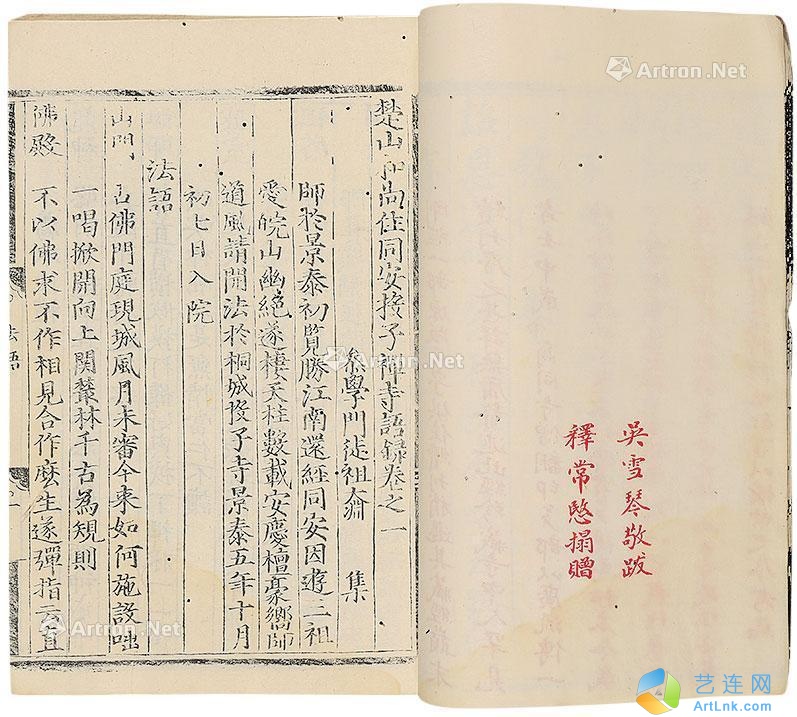 吳雪琴敬跋
釋常慜搨贈
楚山和尚住同安投子禪寺語錄卷之一
叅學門徒祖裔 集
師於景泰初覧勝江南還經同安因遊二祖
愛皖山幽絕遂棲天柱數載安慶檀豪嚮師
道風請開法於桐城投子寺景泰五年十月
初七日入院
法語
山門 古佛門庭現城風月未審今來如何施設咄
一喝掀開向上関叢林千古為規則
佛殿 不以佛求不作相見合作麼生遂彈指云直
法語
Artron.Net
Artron.Net
Artron.Net
Artron.Net
艺连网
ArtLnk.com